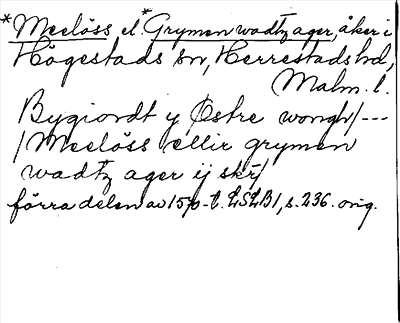 *Meelöss el. *Grymen wadtz ager, åker i
Högestads sn, Herrestads hd,
Malm. l.
Bygiordt y Östre wongh/---
/Meelöss ellir grymen
wadtz ager ij skr/
förra delen av 1570-t. LSLB1, s. 236. orig.